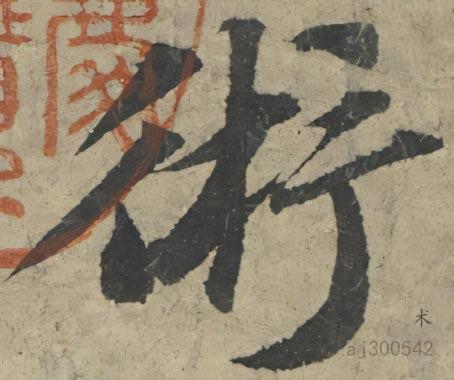 術
术
aj300542